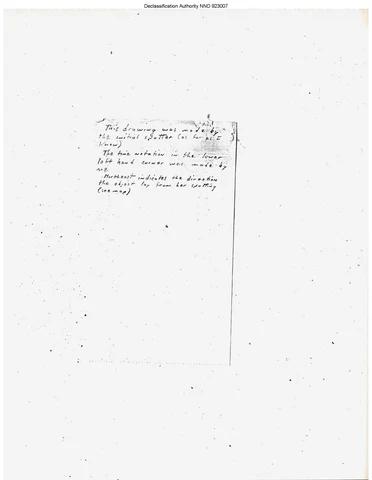 Declassification Authority NND 923007
This drawing was made by
the initial spotter (as far as I
know)
The time notation in the lower
left hand corner was made by
me.
Northeast indicates the direction
the object lay from her spotting
(see map)